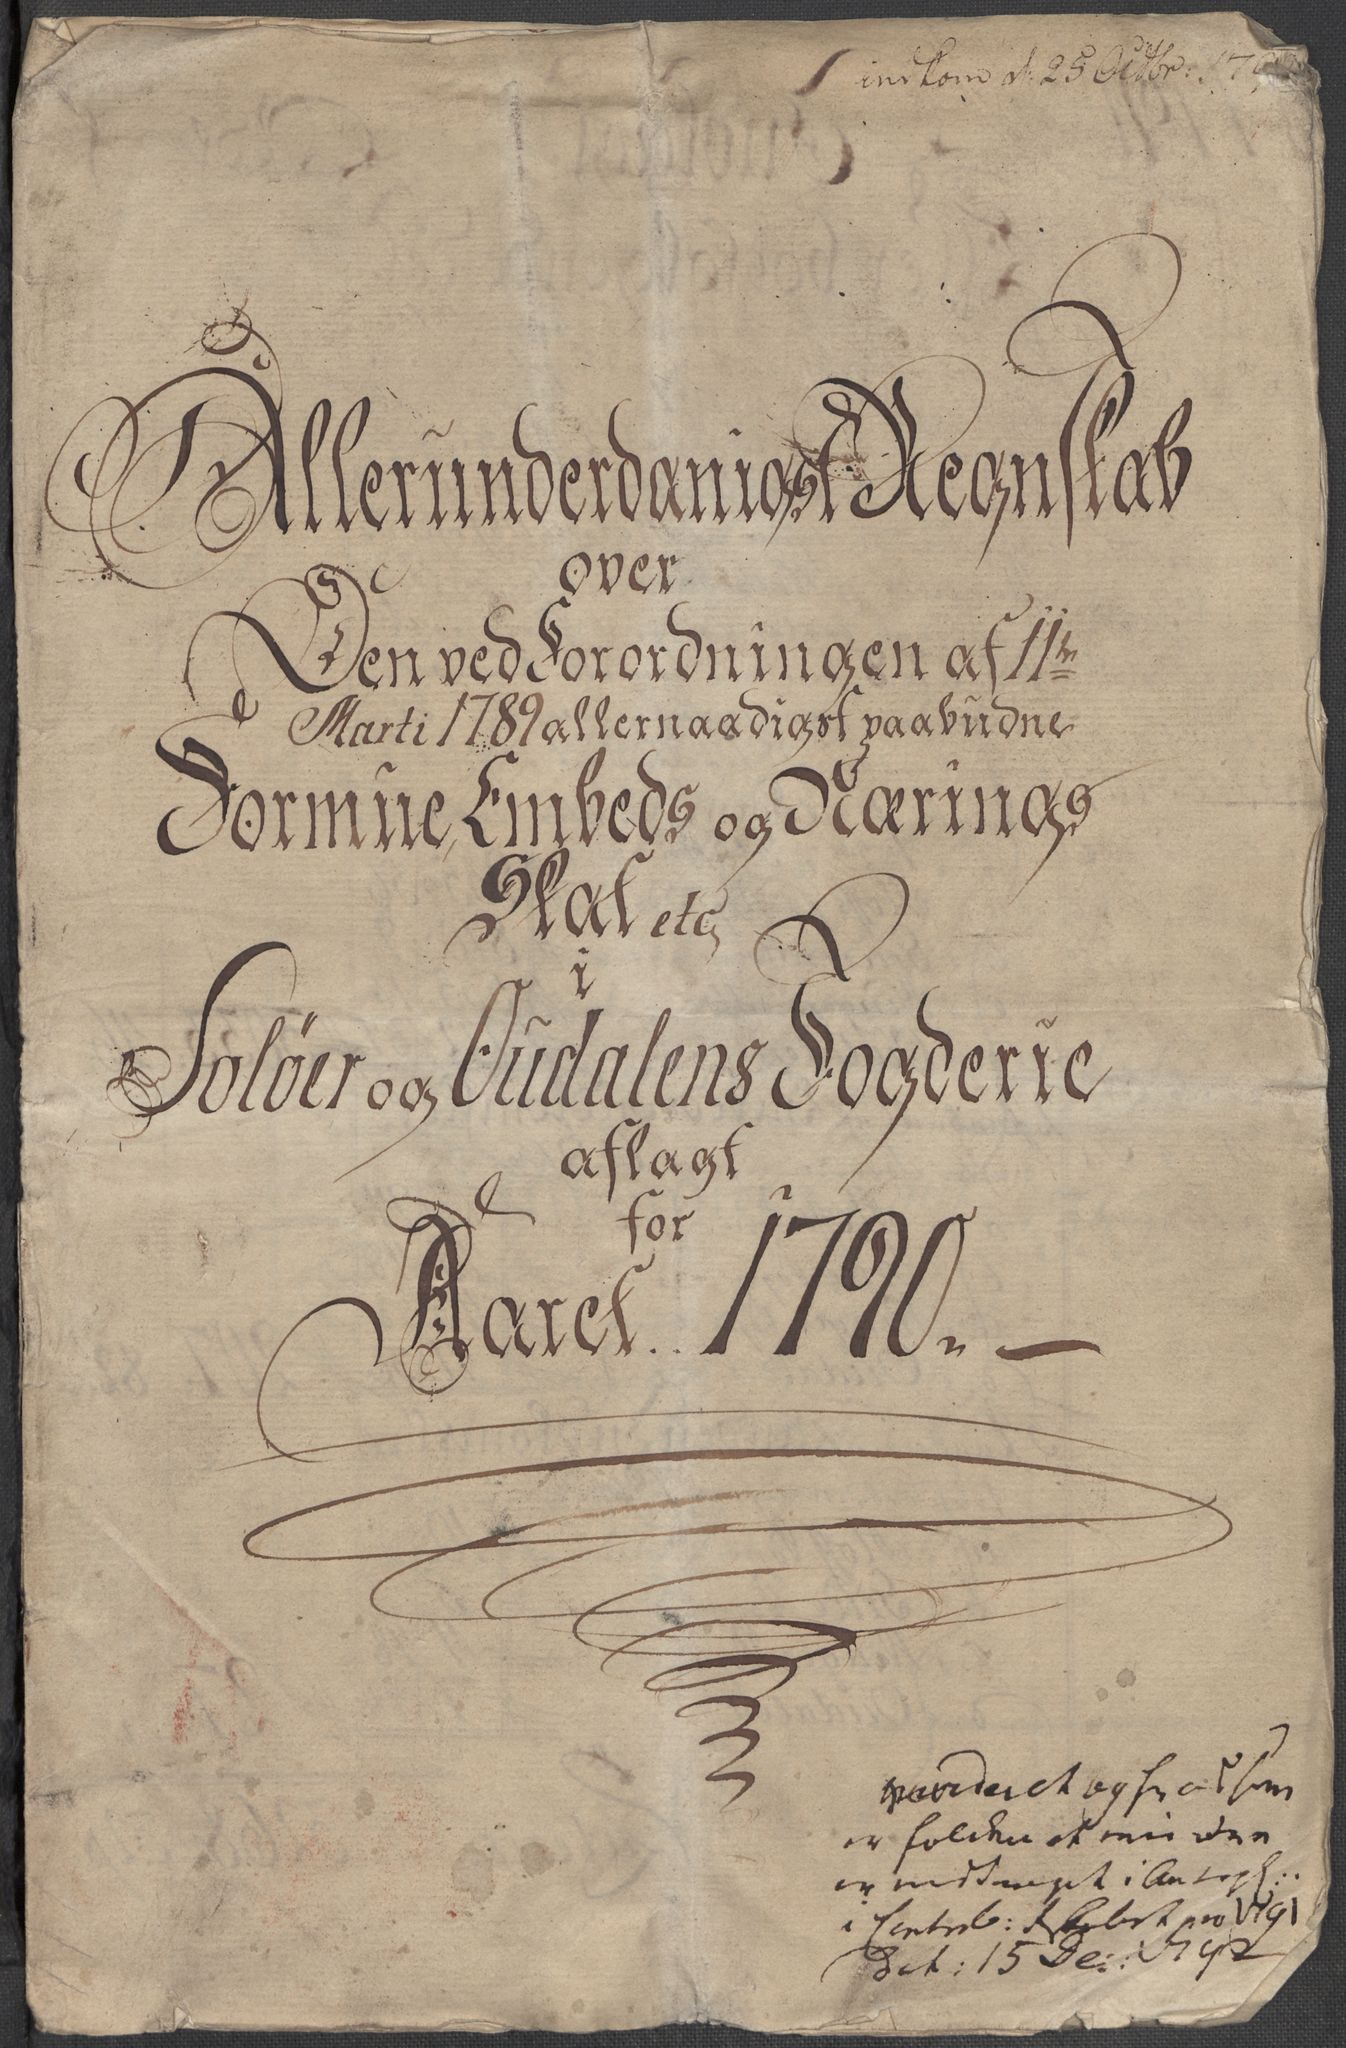 indkom d. 25 Octbr: 179
Allerunderdanigst Regnskab
over
Den ved Forordningen af 11te
Marti 1789 allernaadigst paabudne
Formue, Embeds og Nærings
Skat etc
i
Soløer og Oudalens Fogderie
aflagt
for
Aaret .. 1790. —
og
er
er i
i pro 1791
Dat: 15 Dec: 1792